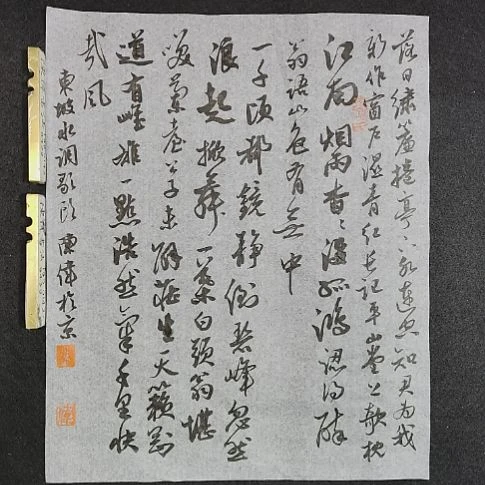 落日繡簾捲亭下水連空知君為我
新作窗戶濕青紅長記平山堂上欹枕
江南烟雨杳々沒孤鴻認得醉
翁語山色有無中
一千頃都鏡靜倒碧峰忽然
浪起掀舞一葉白頭翁堪
笑蘭臺公子未解莊生天籟剛
道有雌雄一點浩然氣千里快
哉風
東坡水調歌頭 陳偉於京